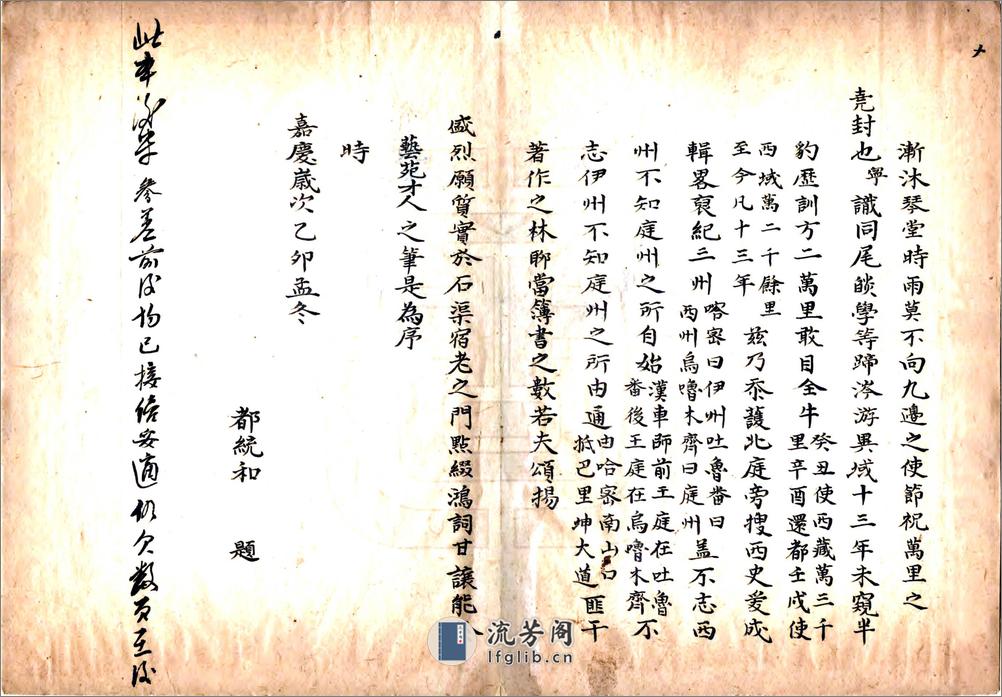 漸沐琴堂時雨莫不向九邊之使節祝萬里之
堯封也寧識同尾燄學等蹄涔游異域十三年未窺半
豹歷訓方二萬里敢目全牛癸丑使西藏萬三千
里辛酉還都壬戌使
西域萬二千餘里
至今凡十三年茲乃忝護北庭旁搜西史爰成
輯畧裒紀三州喀密曰伊州吐魯番曰
西州烏嚕木齊曰庭州蓋不志西
州不知庭州之所自始漢車師前王庭在吐魯
番後王庭在烏嚕木齊不
志伊州不知庭州之所由通由哈密南山口
抵巴里坤大道匪干
著作之林聊當簿書之數若夫頌揚
盛烈願質實於石渠宿老之門點綴鴻詞甘讓能
藝苑才人之筆是為序
時
嘉慶歲次乙卯孟冬
都統和 題
此本後半參差前後均已接倍妥適仍欠數頁在後
流芳阁
lfglib.cn